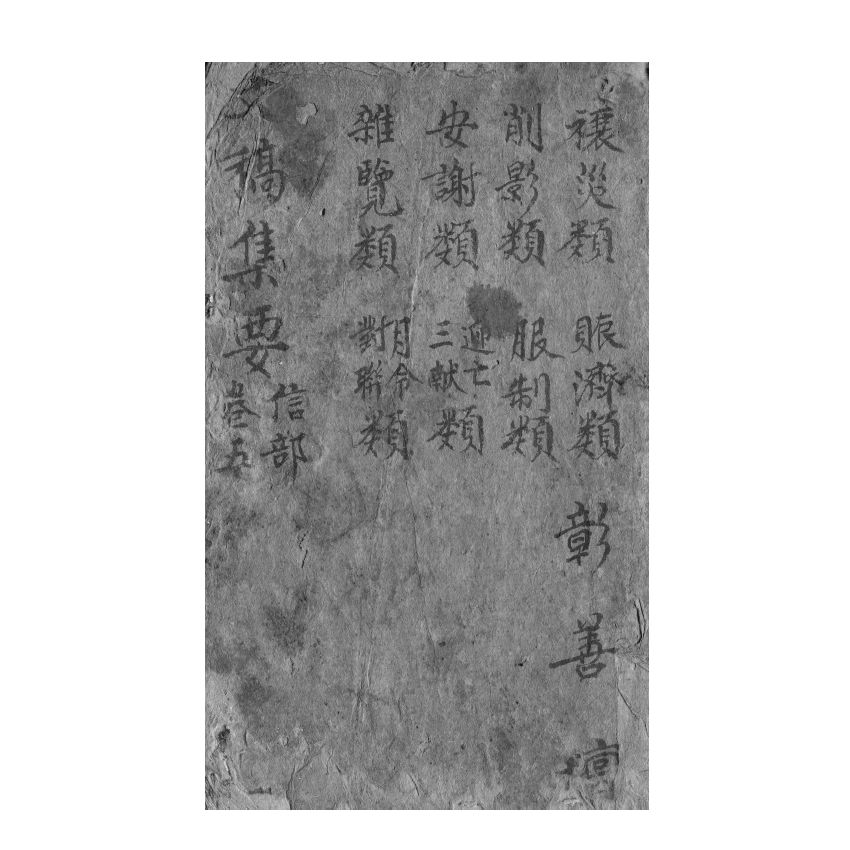 禳災類 賑濟類
彰善壇
削影類 服制類
安謝類 迎亡三献類
雜覽類 月令對聯類
文稿集要 信部卷五